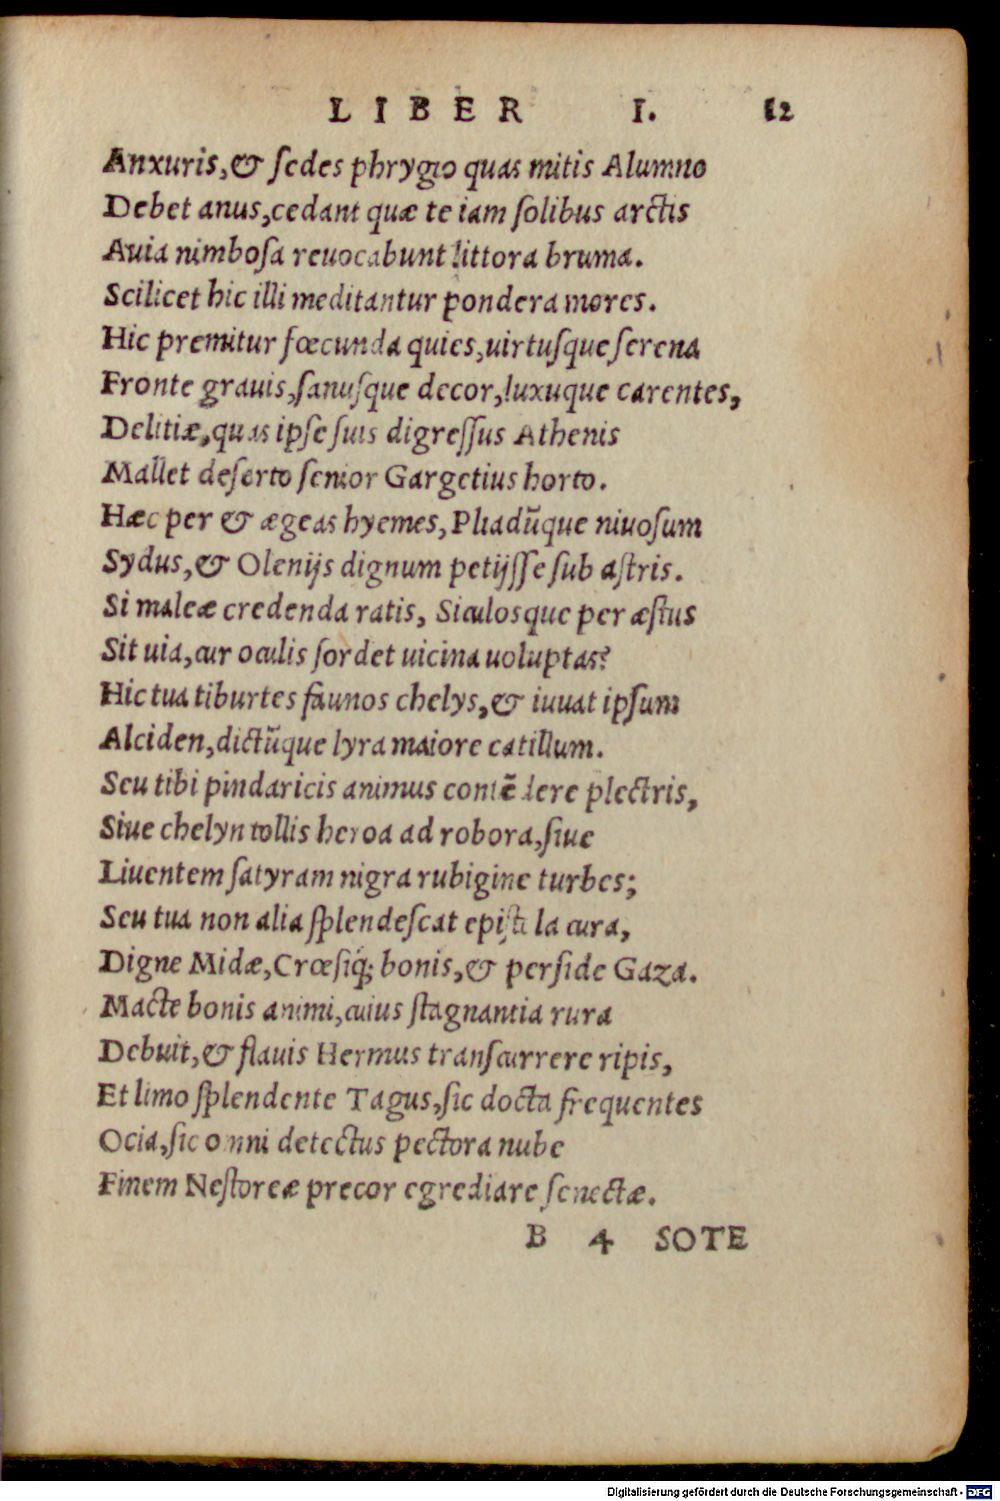 LIBER I. 12
Anxuris,& ſedes phrygio quas mitis Alumno
Debet anus,cedant quæ te iam ſolibus arctis
Auia nimboſa reuocabunt littora bruma.
Scilicet hic illi meditantur pondera mores.
Hic premitur fœcunda quies,uirtuſque ſerena
Fronte grauis,ſanuſque decor,luxuque carentes,
Delitiæ,quas ipſe ſuis digreſſus Athenis
Mallet deſerto ſenior Gargetius horto.
Hæc per & ægeas hyemes, Pliadũque niuoſum
Sydus,& Olenijs dignum petijſſe ſub aſtris.
Si maleæ credenda ratis, Siculosque per æſtus
Sit uia,cur oculis ſordet uicina uoluptas?
Hic tua tiburtes faunos chelys,& iuuat ipſum
Alciden,dictũque lyra maiore catillum.
Seu tibi pindaricis animus contẽdere plectris,
Siue chelyn tollis heroa ad robora,ſiue
Liuentem ſatyram nigra rubigine turbes;
Seu tua non alia ſplendeſcat epiſtola cura,
Digne Midæ,Crœſiq́; bonis,& perſide Gaza.
Macte bonis animi,cuius ſtagnantia rura
Debuit,& flauis Hermus tranſcurrere ripis,
Et limo ſplendente Tagus,ſic docta frequentes
Ocia,ſic omni detectus pectora nube
Finem Neſtoreæ precor egrediare ſenectæ.
B 4 SOTE
Digitalisierung gefördert durch die Deutsche Forschungsgemeinschaft - DFG